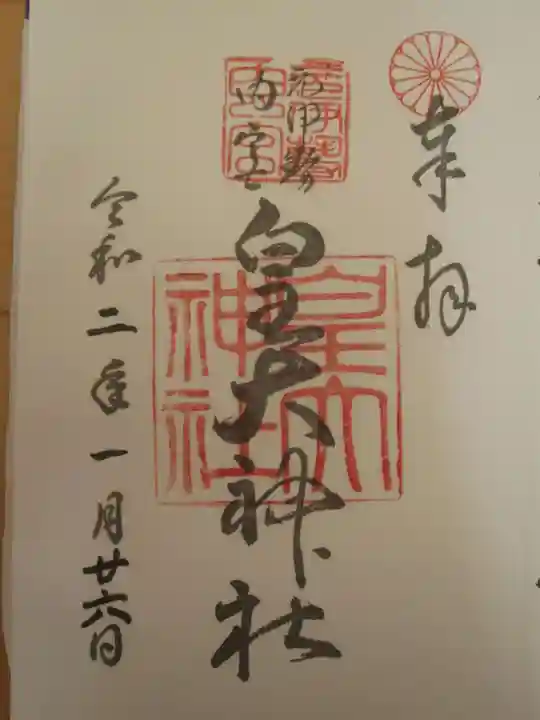 奉拝
元伊勢
内宮
皇大神社
皇大神社
令和二年一月廿六日